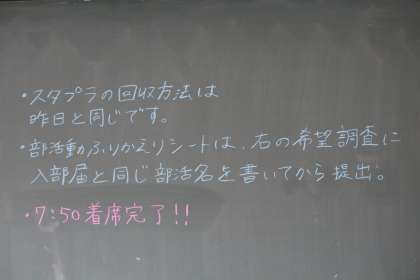 ・スタプラの回収方法は
昨日と同じです。
・部活動ふりかえりシートは、右の希望調査に
入部届と同じ部活名を書いてから提出。
・7:50着席完了!!